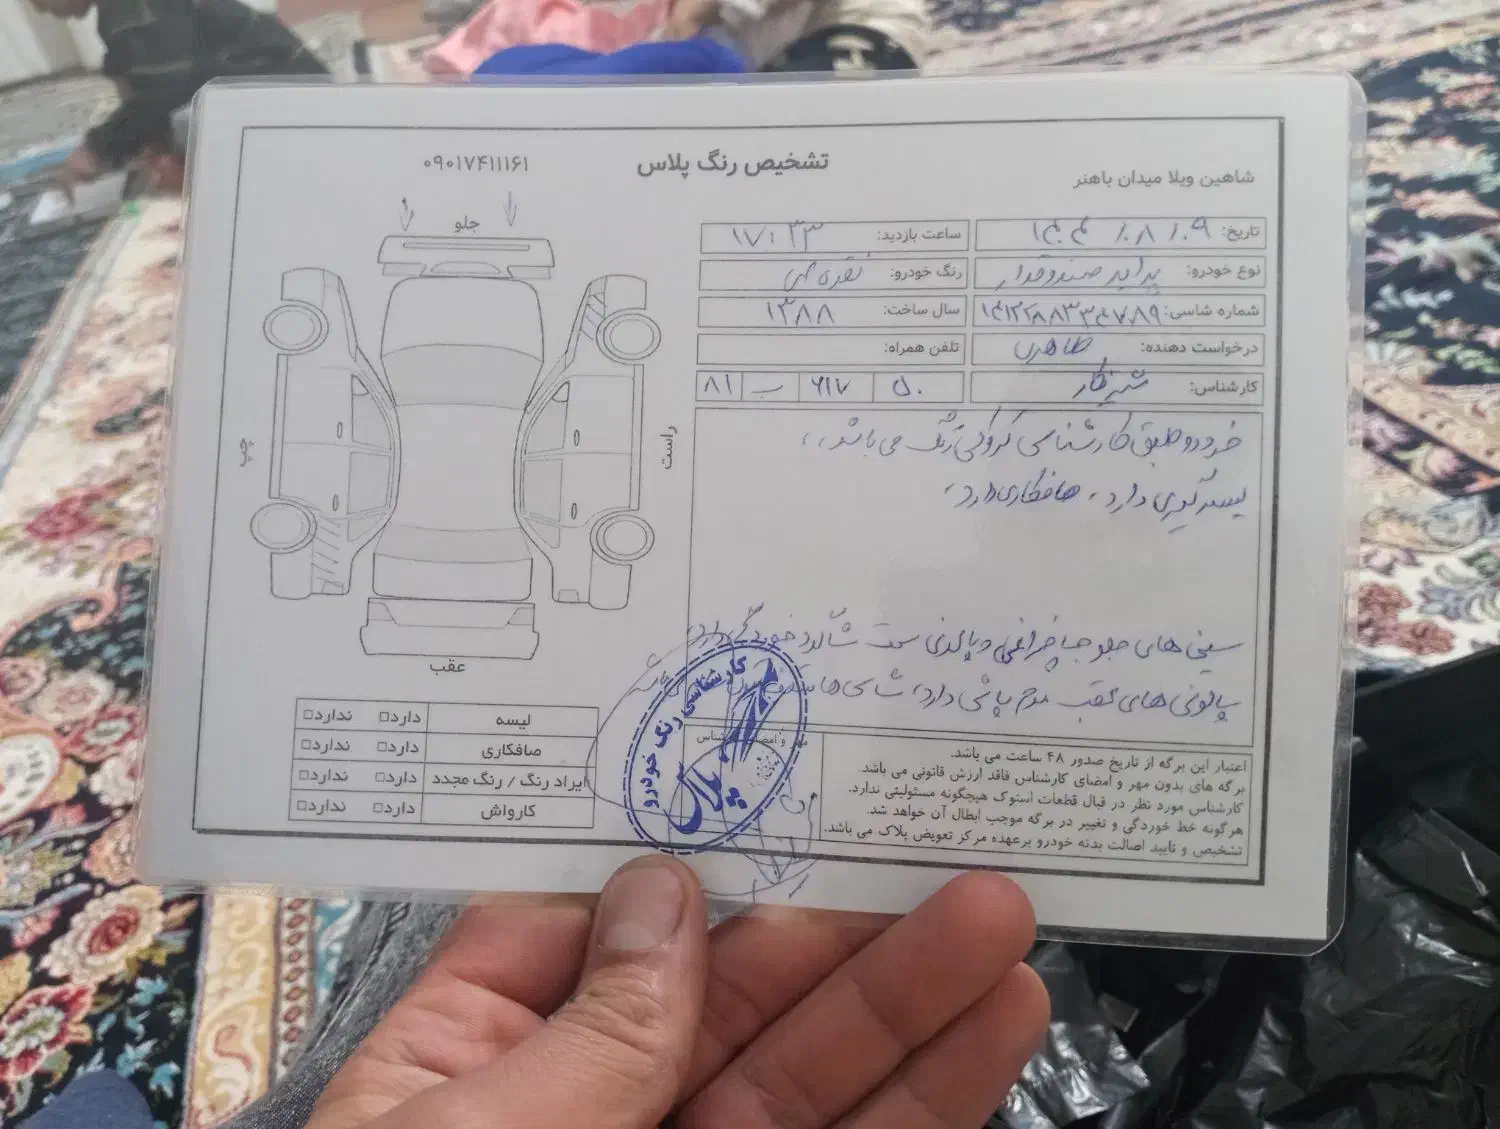 شاهین ویلا میدان باهنر
تشخیص رنگ پلاس
۰۹۰۱۷۴۱۱۱۶۱
تاریخ: ۱۴۰۴/۰۸/۰۹
ساعت بازدید: ۱۷:۳۳
نوع خودرو: پراید صندوقدار
رنگ خودرو: نقره ای
شماره شاسی:
سال ساخت: ۱۳۸۸
درخواست دهنده: طاهری
تلفن همراه:
کارشناس:
۸۱ ب ۶۱۷ ۵۰
خودرو طبق کارشناسی کروکی رنگ می باشد،
لیسه گیری دارد، صافکاری دارد،
سینی های جلو جا چراغی و پالونی سمت شاگرد خوردگی دارد
پالونی های عقب دارد، شاسی ها
جلو
راست
چپ
عقب
لیسه دارد□ ندارد□
صافکاری دارد□ ندارد□
ایراد رنگ / رنگ مجدد دارد□ ندارد□
کارواش دارد□ ندارد□
مهر و امضا کارشناس
کارشناسی رنگ خودرو
پلاس
اعتبار این برگه از تاریخ صدور ۴۸ ساعت می باشد.
برگه های بدون مهر و امضای کارشناس فاقد ارزش قانونی می باشد.
کارشناس مورد نظر در قبال قطعات استوک هیچگونه مسئولیتی ندارد.
هرگونه خط خوردگی و تغییر در برگه موجب ابطال آن خواهد شد.
تشخیص و تایید اصالت بدنه خودرو برعهده مرکز تعویض پلاک می باشد.